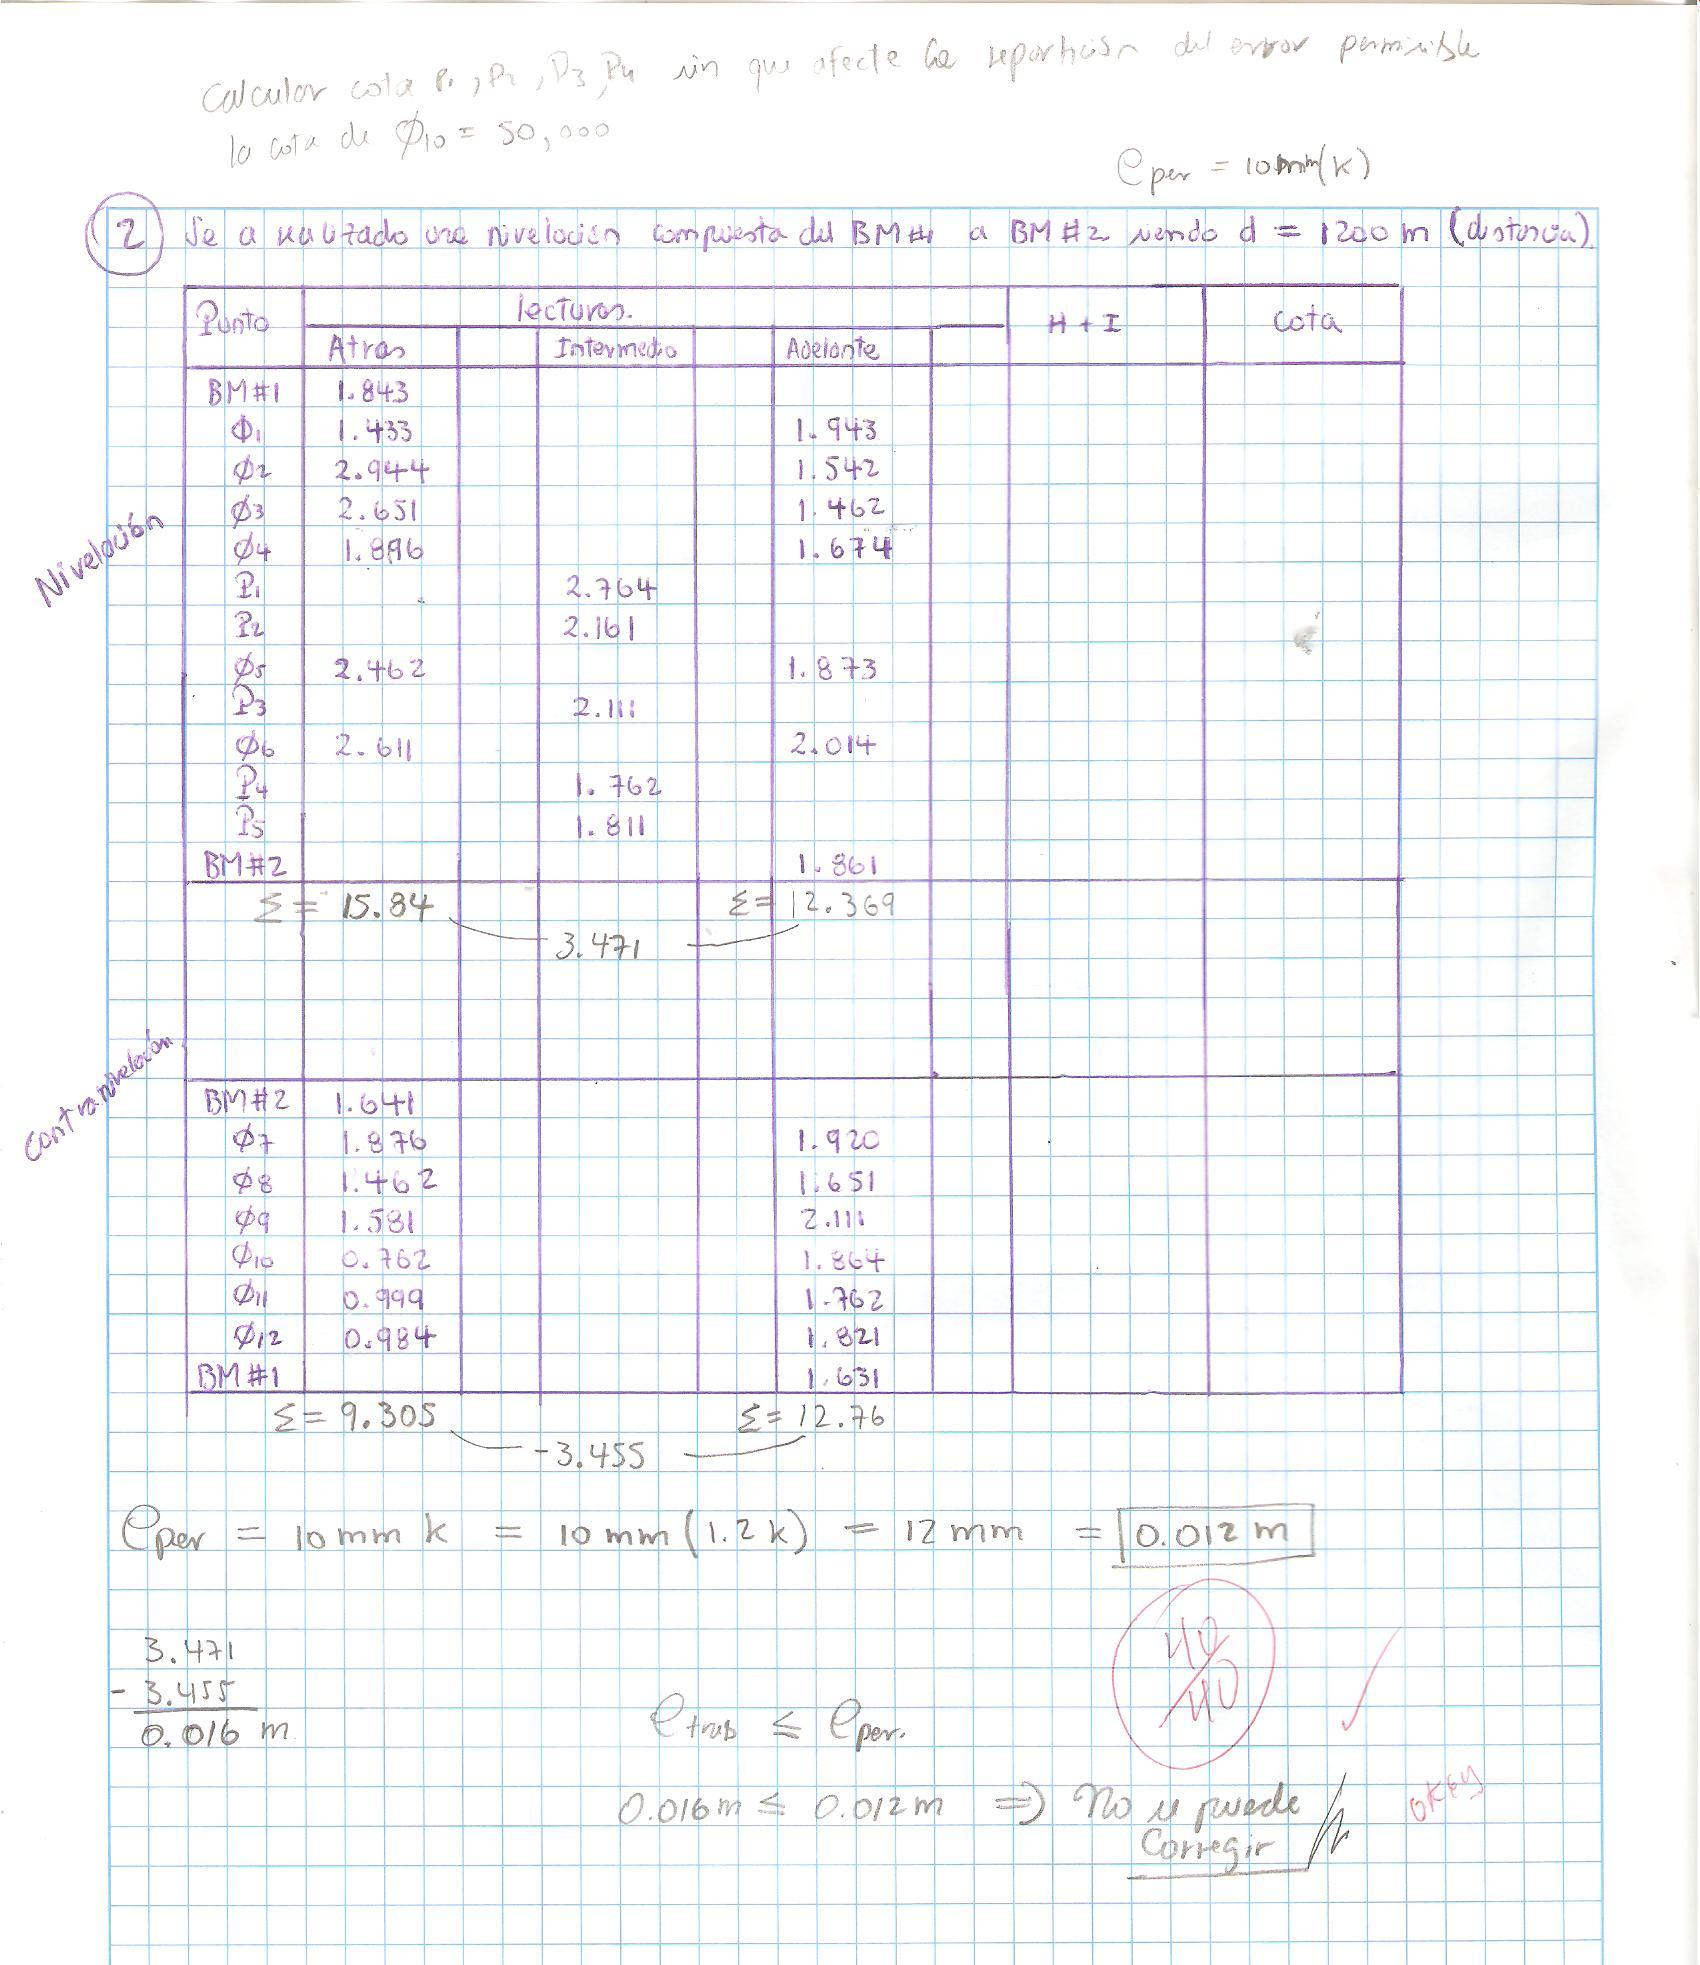 Calcular cota P1, P2, P3, P4 sin que afecte la repartición del error permisible
la cota de Ø10 = 50,000
eper = 10mm(K)
2 Se a realizado una nivelación compuesta del BM#1 a BM#2 siendo d = 1200 m (distancia).
Punto lecturas. H + I Cota
Atras Intermedio Adelante
Nivelación
BM#1 1.843
Ø1 1.433 1.943
Ø2 2.944 1.542
Ø3 2.651 1.462
Ø4 1.896 1.674
P1 2.764
P2 2.161
Ø5 2.462 1.873
P3 2.111
Ø6 2.611 2.014
P4 1.762
P5 1.811
BM#2 1.861
Σ = 15.84 Σ = 12.369
3.471
Contranivelación
BM#2 1.641
Ø7 1.876 1.920
Ø8 1.462 1.651
Ø9 1.581 2.111
Ø10 0.762 1.864
Ø11 0.999 1.762
Ø12 0.984 1.821
BM#1 1.631
Σ = 9.305 Σ = 12.76
-3.455
eper = 10 mm k = 10 mm (1.2 k) = 12 mm = 0.012 m
3.471
- 3.455
0.016 m
etrab ≤ eper.
40/40
0.016 m ≤ 0.012 m ⇒ No se puede
Corregir
okey